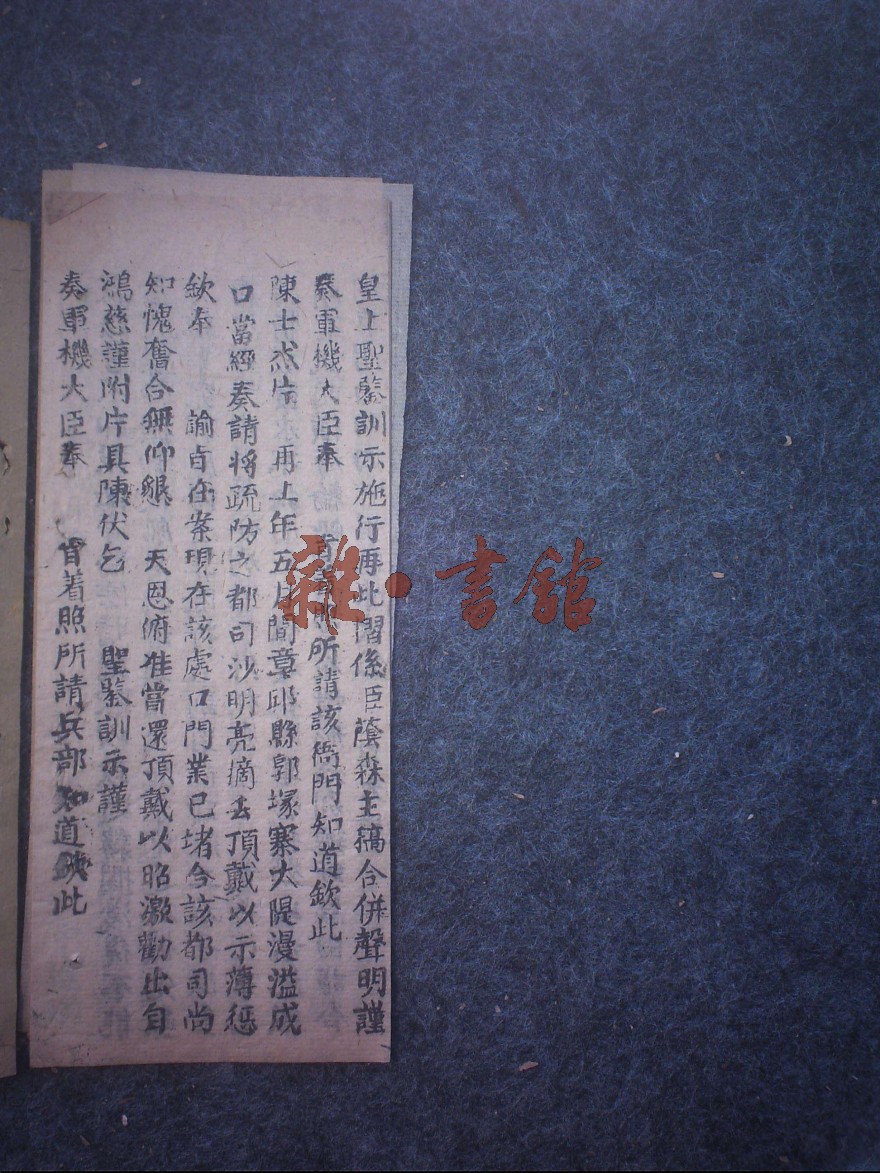 皇上聖鑒訓示施行再此摺係臣蔭森主稿合併聲明謹
奏軍機大臣奉 所請該衙門知道欽此
陳士杰片 再上年五月間章邱縣郭塚寨大隄漫溢成
口當經奏請將疏防之都司沙明亮摘去頂戴以示薄懲
欽奉 諭旨在案現在該處口門業已堵合該都司尚
知愧奮合無仰懇 天恩俯准賞還頂戴以昭激勸出自
鴻慈謹附片具陳伏乞 聖鑒訓示謹
奏軍機大臣奉 旨着照所請兵部知道欽此
雜·書館